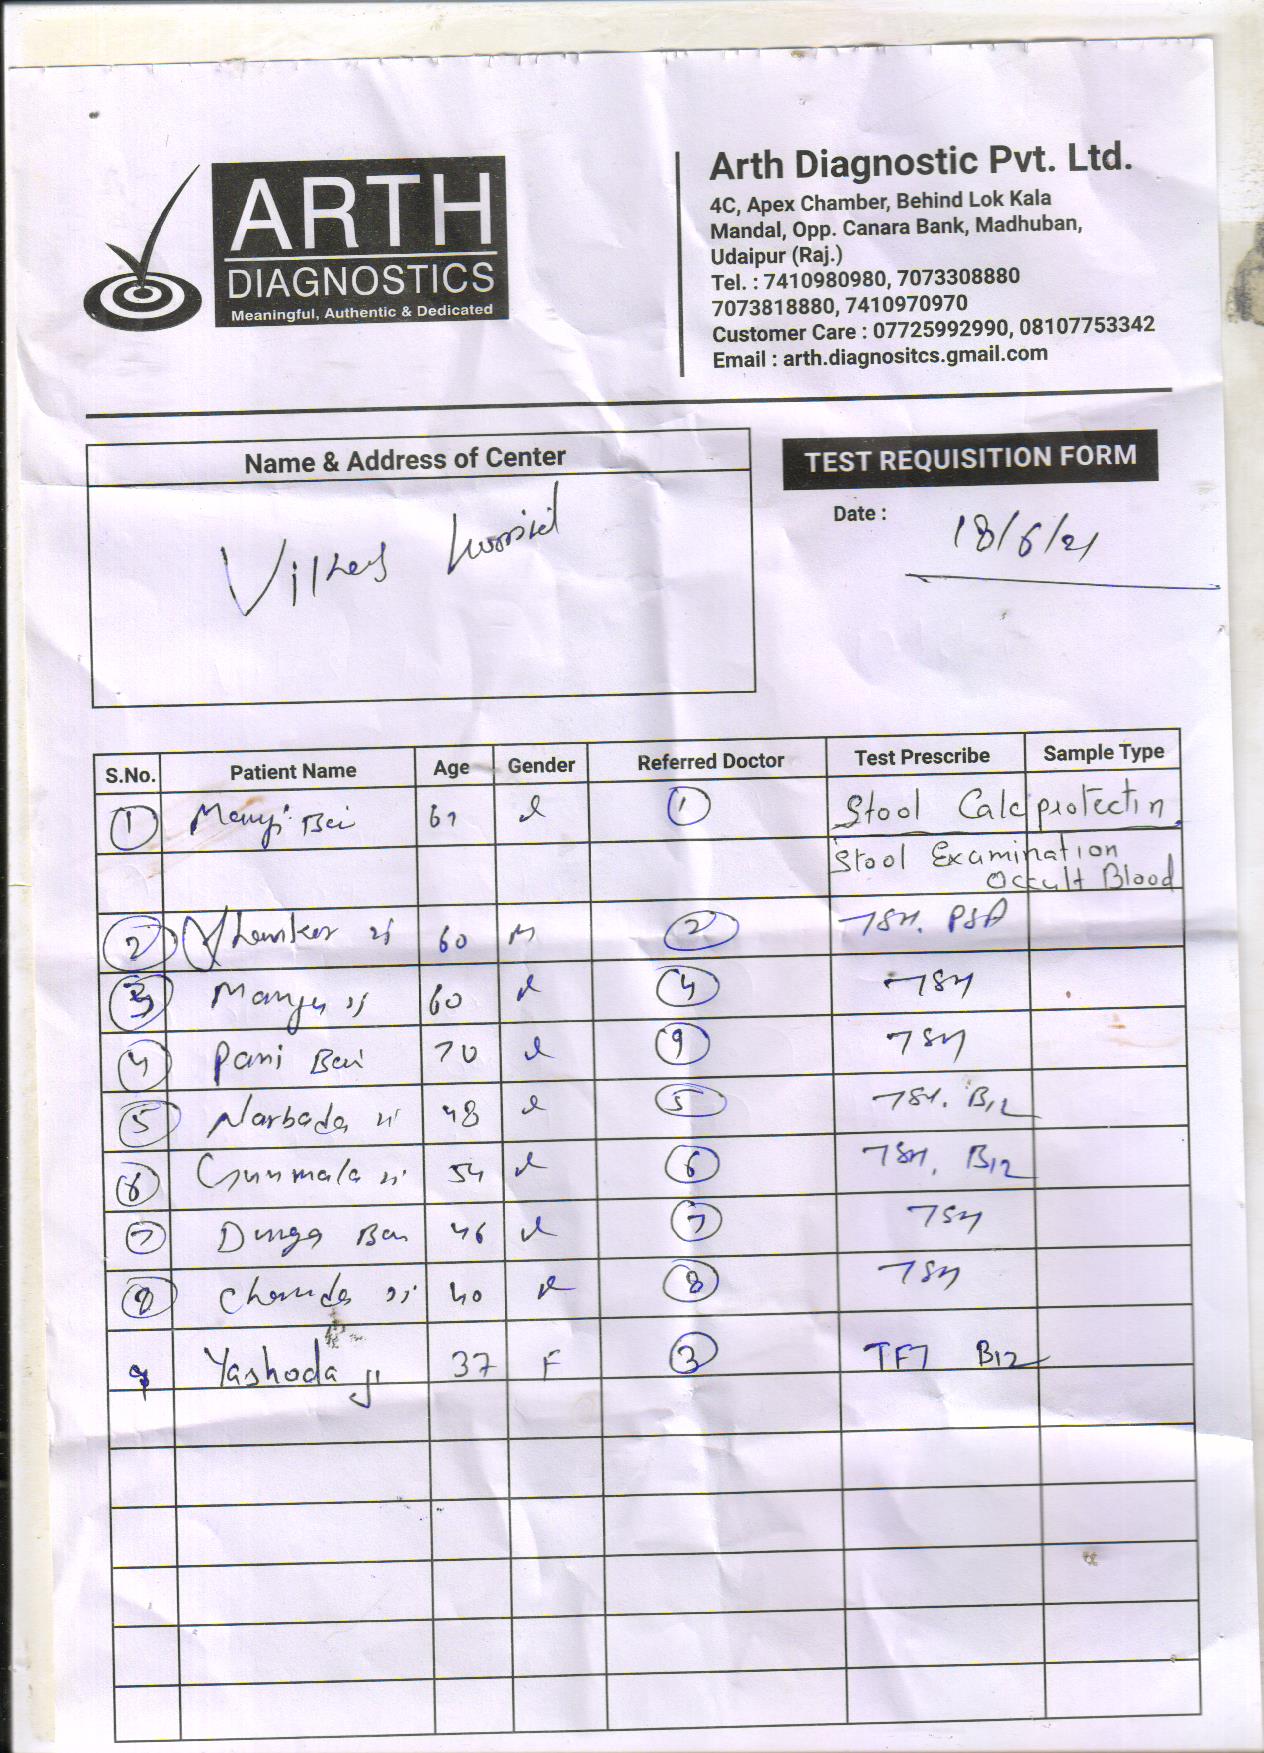 ARTH
DIAGNOSTICS
Meaningful, Authentic & Dedicated
Arth Diagnostic Pvt. Ltd.
4C, Apex Chamber, Behind Lok Kala
Mandal, Opp. Canara Bank, Madhuban,
Udaipur (Raj.)
Tel. : 7410980980, 7073308880
7073818880, 7410970970
Customer Care : 07725992990, 08107753342
Email : arth.diagnositcs.gmail.com
Name & Address of Center
TEST REQUISITION FORM
Date : 18/6/21
S.No. Patient Name Age Gender Referred Doctor Test Prescribe Sample Type
1 Bai 1 Stool Calcprotectin
Stool Examination
Occult Blood
2 60 M 2 TSH. PSA
3 60 4 TSH
4 Pani Bai 70 9 TSH
5 Narbada ji 48 5 TSH. B12
6 54 6 TSH, B12
7 Durga Bai 46 7 TSH
8 Chanda ji 40 8 TSH
9 Yashoda ji 37 F 3 TFT B12